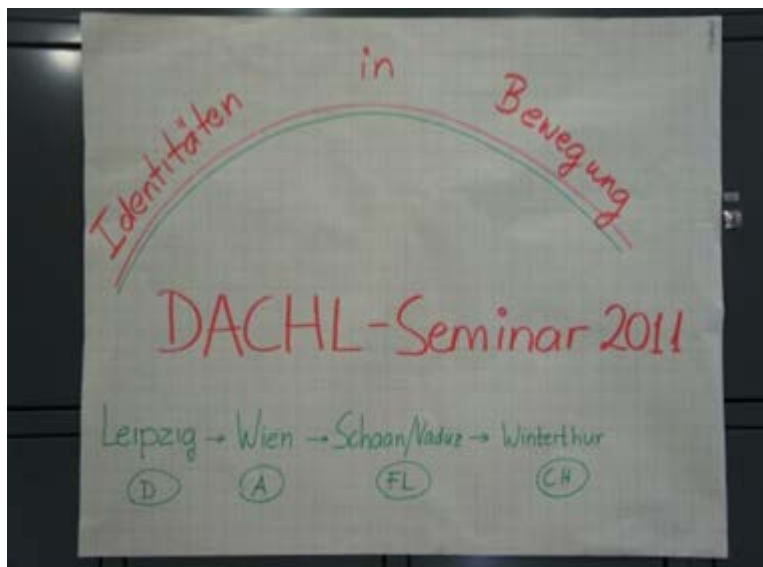 Identitäten in Bewegung
DACHL-Seminar 2011
Leipzig → Wien → Schaan/Vaduz → Winterthur
D A FL CH